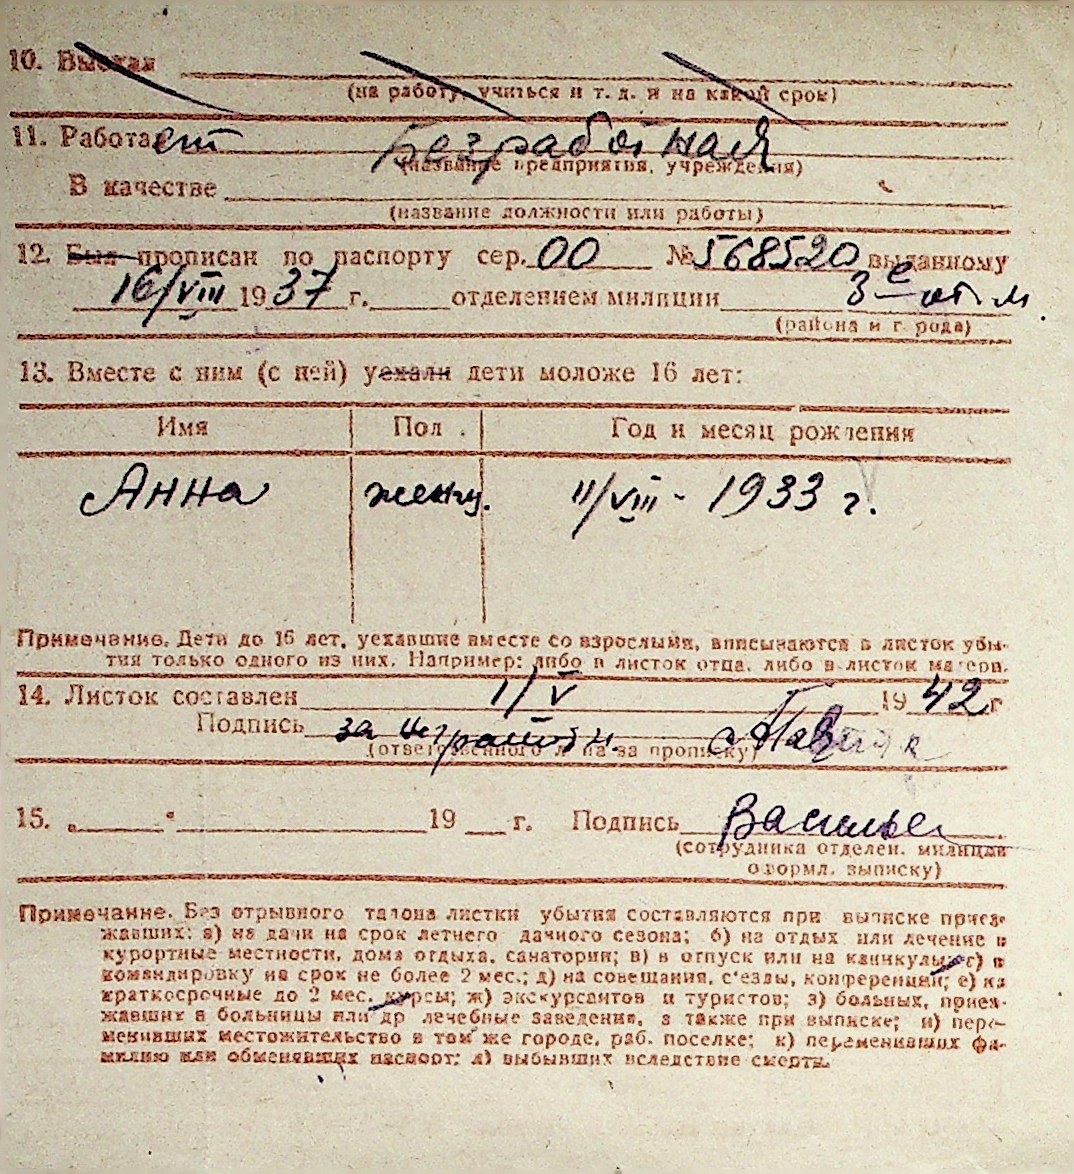 10. Выехал
(на работу, учиться и т. д. и на какой срок)
11. Работает Безработная
(название предприятия, учреждения)
В качестве
(название должности или работы)
12. Был прописан по паспорту сер. 00 № 568520 выданному
16/VIII 1937 г. отделением милиции 3-е от. м.
(района и города)
13. Вместе с ним (с ней) уехали дети моложе 16 лет:
Имя Пол Год и месяц рождения
Анна женщ. 11/VIII - 1933 г.
Примечание. Дети до 16 лет, уехавшие вместе со взрослыми, вписываются в листок убы-
тия только одного из них. Например: либо в листок отца, либо в листок матери.
14. Листок составлен 1/V 1942 г
Подпись за
(ответственного лица за прописку)
15. „ " 19 г. Подпись Василье
(сотрудника отделен. милиции
оформл. выписку)
Примечание. Без отрывного талона листки убытия составляются при выписке приез-
жавших: а) на дачи на срок летнего дачного сезона; б) на отдых или лечение в
курортные местности, дома отдыха, санатории; в) в отпуск или на каникулы; г) в
командировку на срок не более 2 мес.; д) на совещания, с'езды, конференции; е) на
краткосрочные до 2 мес. курсы; ж) экскурсантов и туристов; з) больных, приез-
жавших в больницы или др лечебные заведения, а также при выписке; и) пере-
менивших местожительство в том же городе, раб. поселке; к) переменивших фа-
милию или обменявших паспорт; л) выбывших вследствие смерти.